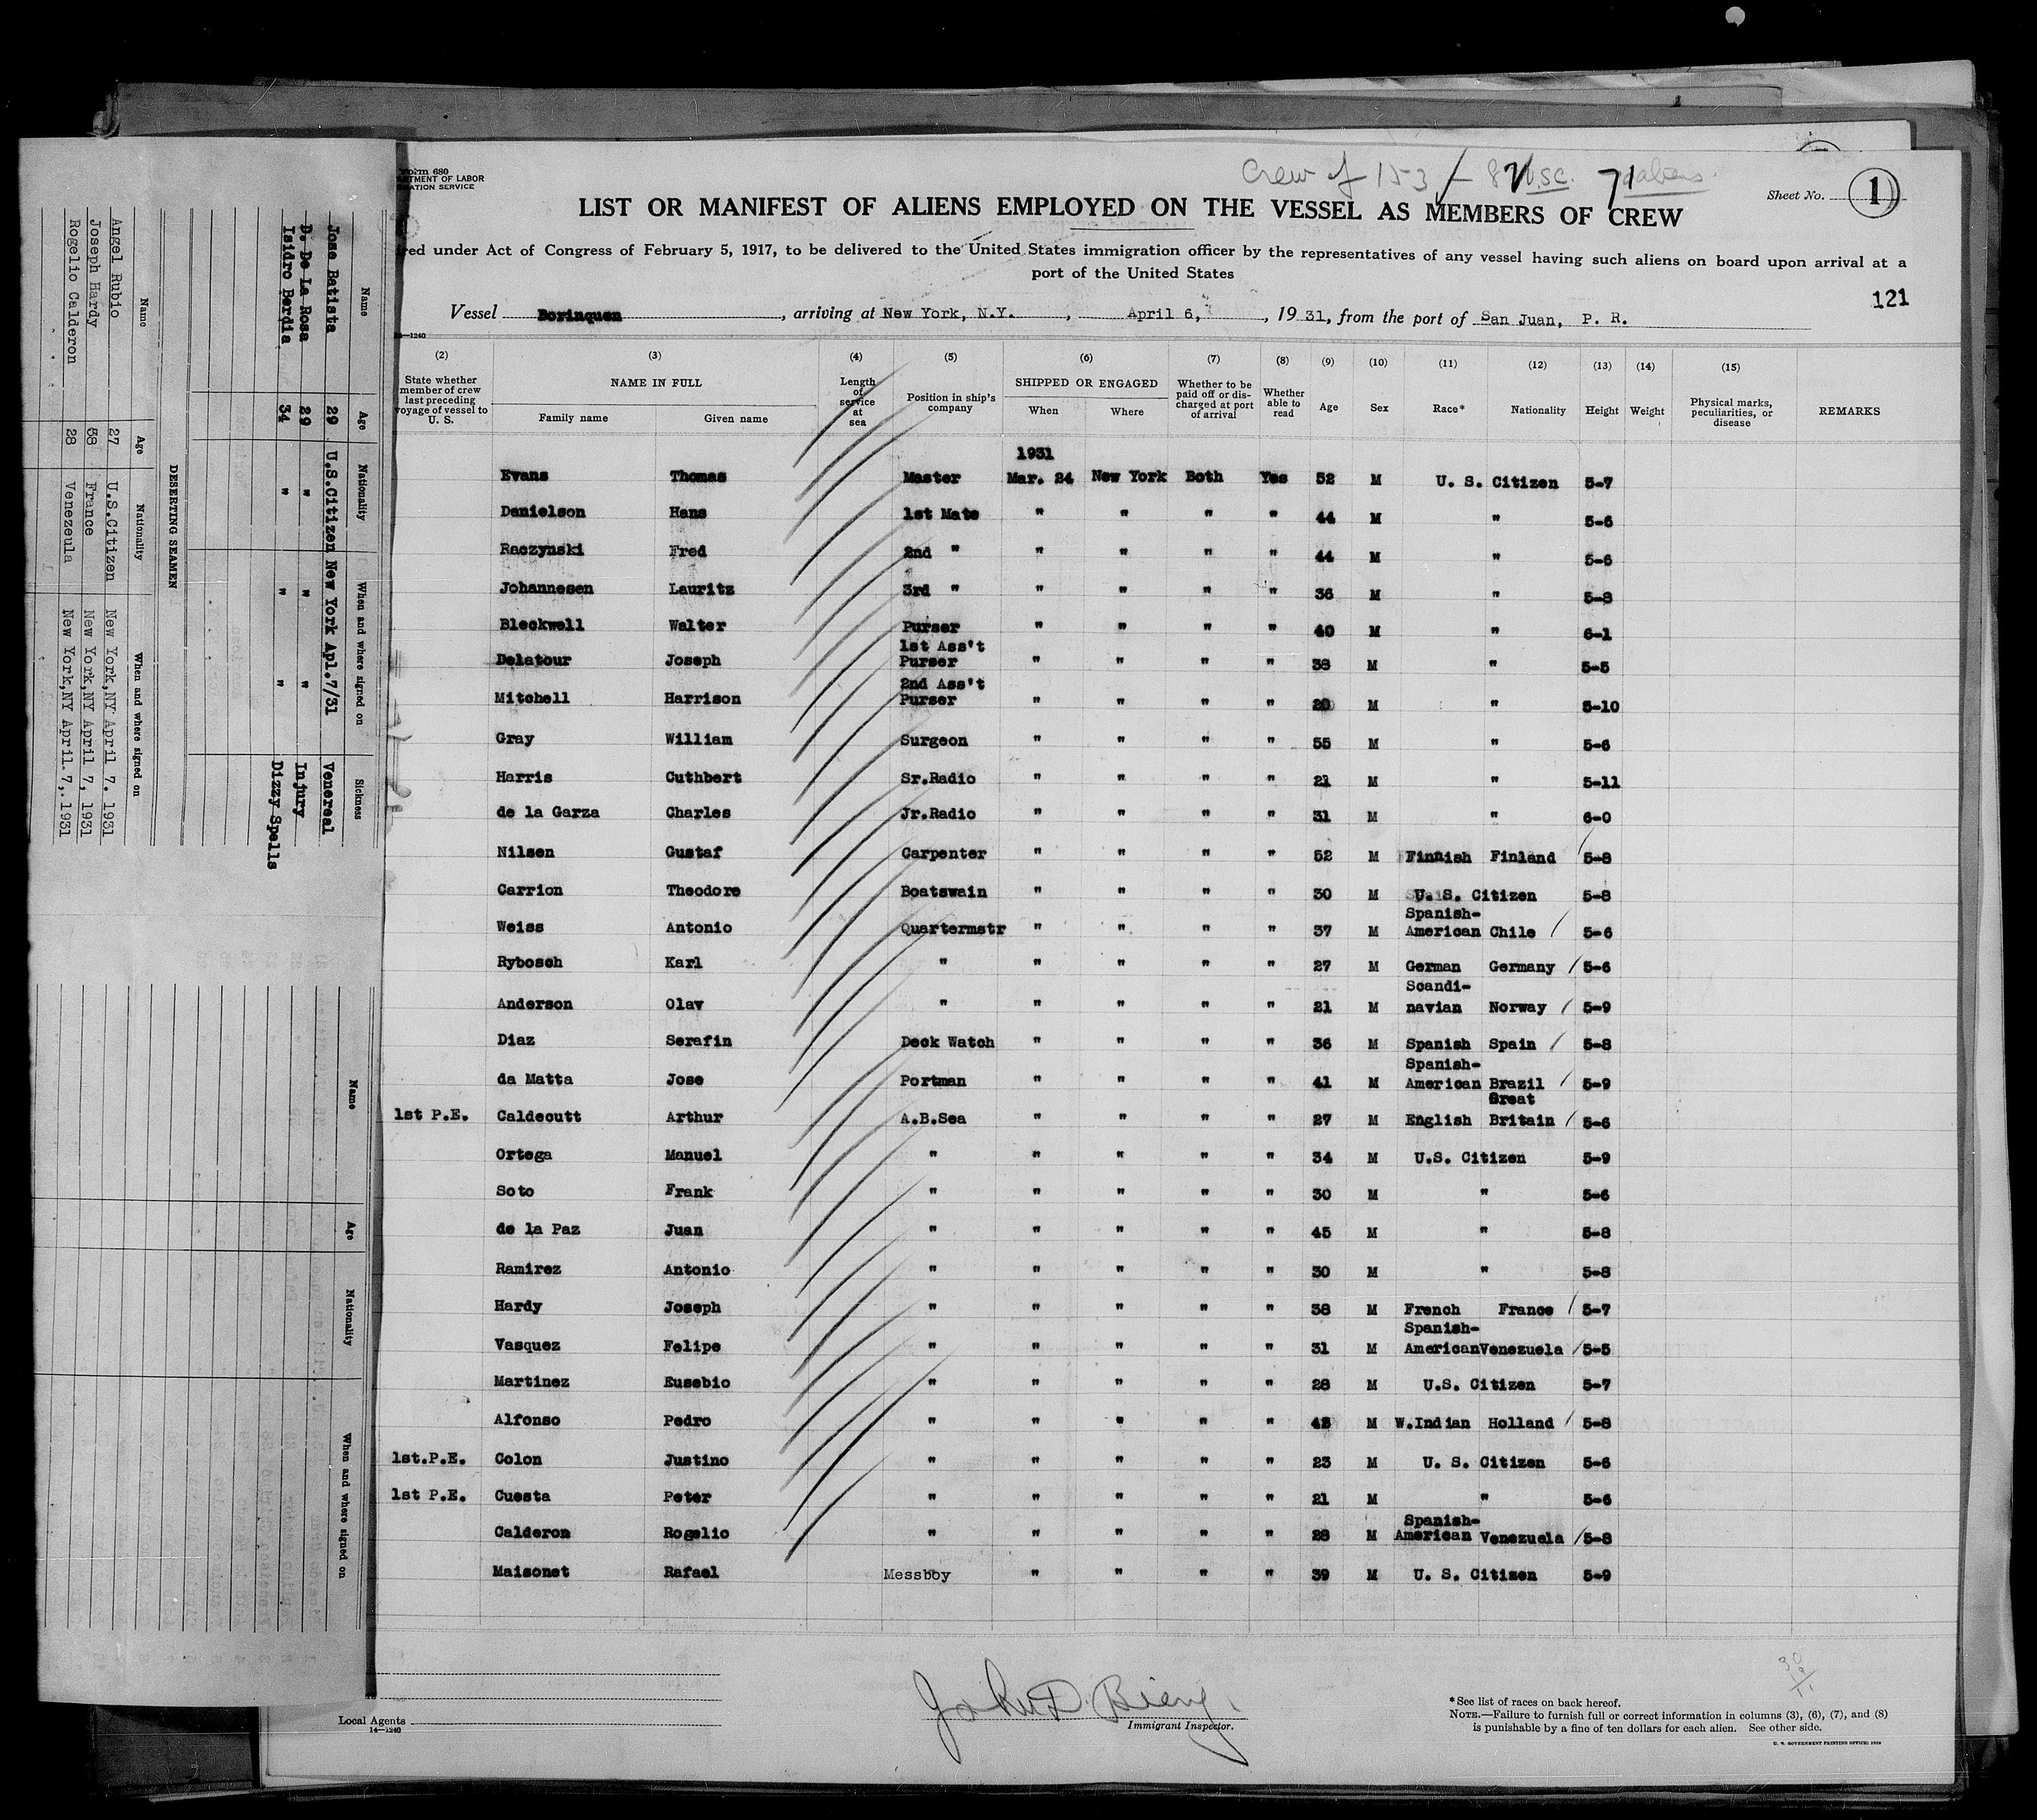 Form 680
Crew of 153 / — U.S.C. 71 aliens.
Sheet No. 1
LIST OR MANIFEST OF ALIENS EMPLOYED ON THE VESSEL AS MEMBERS OF CREW
red under Act of Congress of February 5, 1917, to be delivered to the United States immigration officer by the representatives of any vessel having such aliens on board upon arrival at a
port of the United States
121
Vessel Borinquen, arriving at New York, N.Y., April 6, 1931, from the port of San Juan, P. R.
14—1240
(2) (3) (4) (5) (6) (7) (8) (9) (10) (11) (12) (13) (14) (15)
State whether member of crew last preceding voyage of vessel to U. S. NAME IN FULL Family name Given name Length of service at sea Position in ship's company SHIPPED OR ENGAGED When Where Whether to be paid off or discharged at port of arrival Whether able to read Age Sex Race* Nationality Height Weight Physical marks, peculiarities, or disease REMARKS
1931
Evans Thomas Master Mar. 24 New York Both Yes 52 M U. S. Citizen 5-7
Danielson Hans 1st Mate " " " " 44 M " 5-6
Raczynski Fred 2nd " " " " " 44 M " 5-6
Johannesen Lauritz 3rd " " " " " 36 M " 5-8
Bleckwell Walter Purser " " " " 40 M " 6-1
Delatour Joseph 1st Ass't Purser " " " " 38 M " 5-5
Mitchell Harrison 2nd Ass't Purser " " " " 20 M " 5-10
Gray William Surgeon " " " " 55 M " 5-6
Harris Cuthbert Sr.Radio " " " " 21 M " 5-11
de la Garza Charles Jr.Radio " " " " 31 M " 6-0
Nilsen Gustaf Carpenter " " " " 52 M Finnish Finland 5-8
Carrion Theodore Boatswain " " " " 30 M U. S. Citizen 5-8
Weiss Antonio Quartermstr " " " " 37 M Spanish-American Chile 5-6
Rybosch Karl " " " " " 27 M German Germany 5-6
Anderson Olav " " " " " 21 M Scandinavian Norway 5-9
Diaz Serafin Deck Watch " " " " 36 M Spanish Spain 5-8
da Matta Jose Portman " " " " 41 M Spanish-American Brazil 5-9
1st P.E. Caldecutt Arthur A.B.Sea " " " " 27 M English Great Britain 5-6
Ortega Manuel " " " " " 34 M U.S. Citizen 5-9
Soto Frank " " " " " 30 M " 5-6
de la Paz Juan " " " " " 45 M " 5-8
Ramirez Antonio " " " " " 30 M " 5-8
Hardy Joseph " " " " " 38 M French France 5-7
Vasquez Felipe " " " " " 31 M Spanish-American Venezuela 5-5
Martinez Eusebio " " " " " 28 M U.S. Citizen 5-7
Alfonso Pedro " " " " " M W.Indian Holland 5-8
1st.P.E. Colon Justino " " " " " 23 M U. S. Citizen 5-6
1st P.E. Cuesta Peter " " " " " 21 M " 5-6
Calderon Rogelio " " " " " 28 M Spanish-American Venezuela 5-8
Maisonet Rafael Messboy " " " " 39 M U. S. Citizen 5-9
Local Agents
14—1240
Immigrant Inspector.
*See list of races on back hereof.
NOTE.—Failure to furnish full or correct information in columns (3), (6), (7), and (8)
is punishable by a fine of ten dollars for each alien. See other side.
U. S. GOVERNMENT PRINTING OFFICE: 1929
Name Age Nationality When and where signed on Sickness
Jose Batista 29 U.S.Citizen New York Apl.7/31 Venereal
D. De La Rosa 29 " " " Injury
Isidro Berdia 34 " " " Dizzy Spells
DESERTING SEAMEN
Name Age Nationality When and where signed on
Angel Rubio 27 U.S.Citizen New York,NY April 7. 1931
Joseph Hardy 38 France New York,NY April 7, 1931
Rogelio Calderon 28 Venezeula New York,NY April.7,.1931
Name Age Nationality When and where signed on